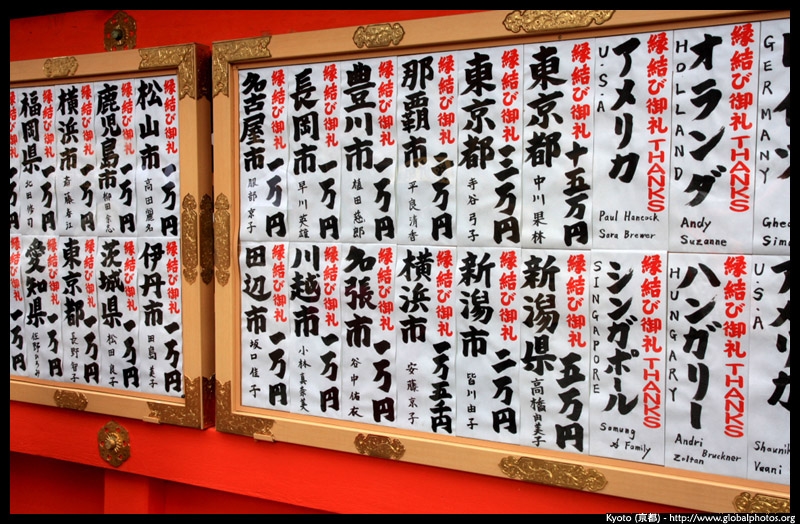 GERMANY
縁結び御礼 THANKS
オランダ
HOLLAND
Andy
Suzanne
縁結び御礼 THANKS
アメリカ
U.S.A
Paul Hancock
Sara Brewer
縁結び御礼
東京都 十五万円
中川果林
縁結び御礼
東京都 三万円
寺谷弓子
縁結び御礼
那覇市 二万円
平良清香
縁結び御礼
豊川市 一万円
縁結び御礼
長岡市 一万円
早川英雄
縁結び御礼
名古屋市 一万円
服部京子
アメリカ
U.S.A
Vaani
縁結び御礼 THANKS
ハンガリー
HUNGARY
Andri Bruckner
Zoltan
縁結び御礼 THANKS
シンガポール
SINGAPORE
Samung
& Family
縁結び御礼
新潟県 五万円
高橋由美子
縁結び御礼
新潟市 二万円
皆川由子
縁結び御礼
横浜市 一万五千円
安藤京子
縁結び御礼
名張市 一万円
谷中祐衣
縁結び御礼
川越市 一万円
小林真奈美
縁結び御礼
田辺市 一万円
坂口佳子
縁結び御礼
松山市 一万円
縁結び御礼
鹿児島市 一万円
縁結び御礼
横浜市 一万円
斎藤春江
縁結び御礼
福岡県 一万円
縁結び御礼
伊丹市 一万円
田島美子
縁結び御礼
茨城県 一万円
松田良子
縁結び御礼
東京都 一万円
長野智子
縁結び御礼
愛知県 一万円
Kyoto (京都) - http://www.globalphotos.org